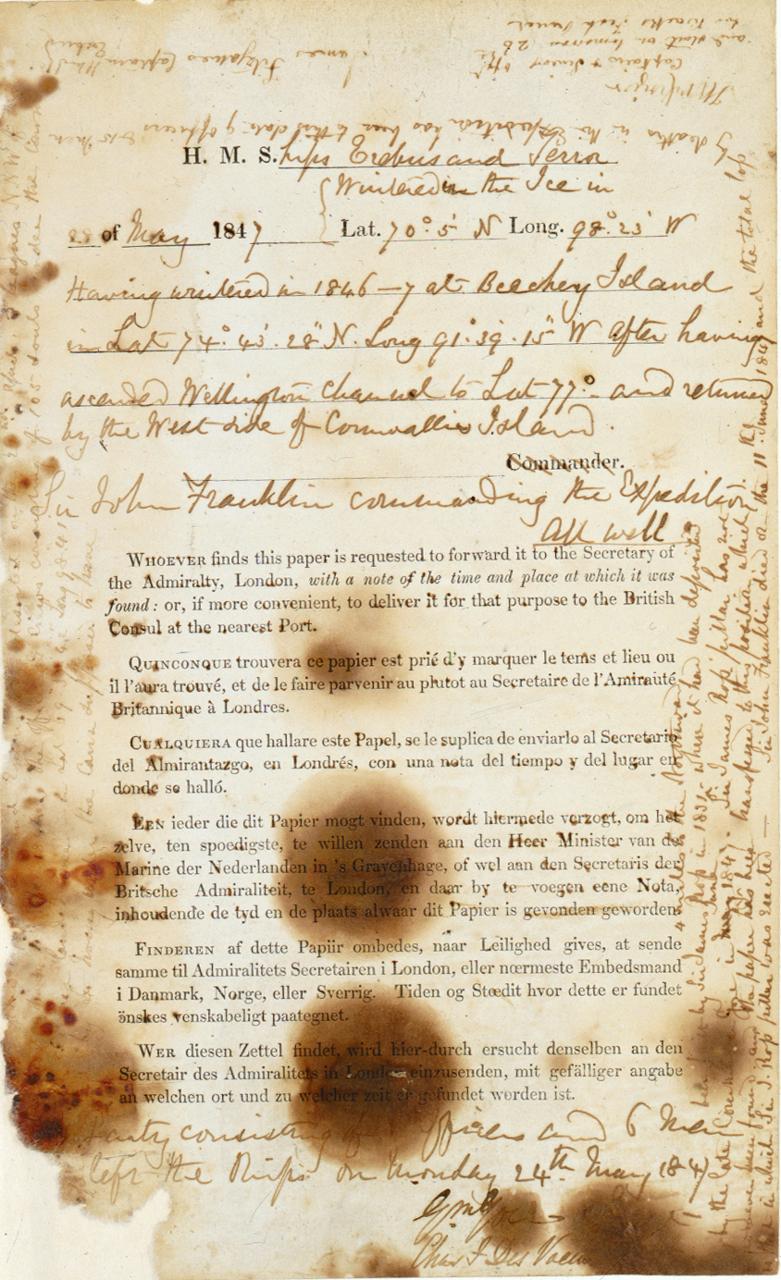 H. M. S. hips Erebus and Terror
Wintered in the Ice in
28 of May 1847 Lat. 70° 5' N Long. 98° 23' W
Having wintered in 1846-7 at Beechey Island
in Lat 74° 43' 28" N. Long 91° 39' 15" W After having
ascended Wellington Channel to Lat 77° and returned
by the West side of Cornwallis Island.
Commander.
Sir John Franklin commanding the Expedition
All well
WHOEVER finds this paper is requested to forward it to the Secretary of
the Admiralty, London, with a note of the time and place at which it was
found: or, if more convenient, to deliver it for that purpose to the British
Consul at the nearest Port.
QUINCONQUE trouvera ce papier est prié d'y marquer le tems et lieu ou
il l'aura trouvé, et de le faire parvenir au plutot au Secretaire de l'Amirauté
Britannique à Londres.
CUALQUIERA que hallare este Papel, se le suplica de enviarlo al Secretario
del Almirantazgo, en Londrés, con una nota del tiempo y del lugar en
donde se halló.
EEN ieder die dit Papier mogt vinden, wordt hiermede verzogt, om het
zelve, ten spoedigste, te willen zenden aan den Heer Minister van de
Marine der Nederlanden in 's Gravenhage, of wel aan den Secretaris der
Britsche Admiraliteit, te London, en daar by te voegen eene Nota,
inhoudende de tyd en de plaats alwaar dit Papier is gevonden geworden.
FINDEREN af dette Papiir ombedes, naar Leilighed gives, at sende
samme til Admiralitets Secretairen i London, eller nœrmeste Embedsmand
i Danmark, Norge, eller Sverrig. Tiden og Stœdit hvor dette er fundet
önskes venskabeligt paategnet.
WER diesen Zettel findet, wird hier-durch ersucht denselben an den
Secretair des Admiralitets in London einzusenden, mit gefälliger angabe
an welchen ort und zu welcher zeit er gefundet worden ist.
Party consisting of 2 Officers and 6 Men
left the Ships on Monday 24th May 1847
Gm Gore
Chas F Des Voeux
4 miles to the Northward
by Sir James Ross in 1831 where it had been deposited
by the late Commander Gore in June 1847. Sir James Ross' pillar has not
however been found and the paper has been transferred to this position which
is that in which Sir J. Ross pillar was erected — Sir John Franklin died on the 11th June 1847 and the total loss
by deaths in the Expedition has been to this date 9 officers & 15 Men
James Fitzjames Captain HMS Erebus
F R M Crozier
Captain & Senior Offr
and start on tomorrow 26
for Backs Fish River